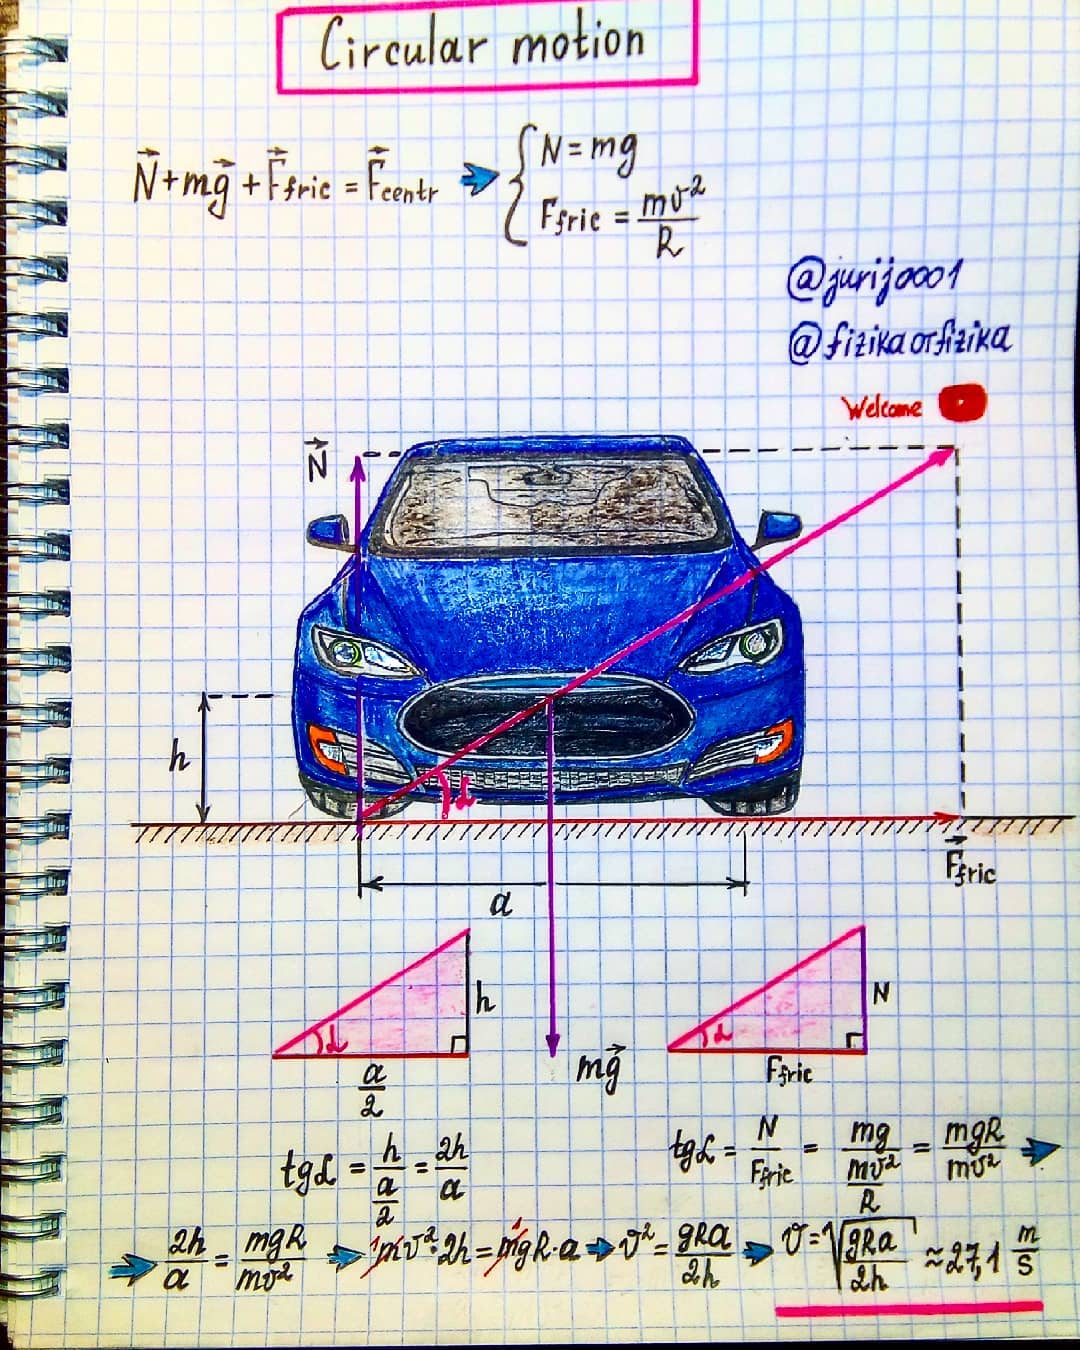 Circular motion
N⃗ + mg⃗ + F⃗fric = F⃗centr ➡ { N = mg
Ffric = mv²/R
@jurij0001
@fizikaorfizika
Welcome
N⃗
h
α
F⃗fric
a
h
N
α
α
a/2
mg⃗
Ffric
tgα = h/(a/2) = 2h/a
tgα = N/Ffric = mg/(mv²/R) = mgR/mv² ➡
➡ 2h/a = mgR/mv² ➡ ¹mv²·2h = ¹mgR·a ➡ v² = gRa/2h ➡ v = √(gRa/2h) ≈ 27,1 m/s